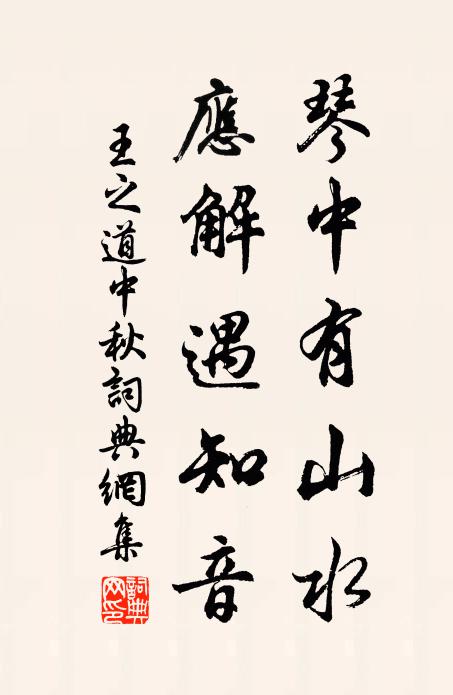 琴中有山水
應解遇知音
王之道中秋詞典網集
詞典網印